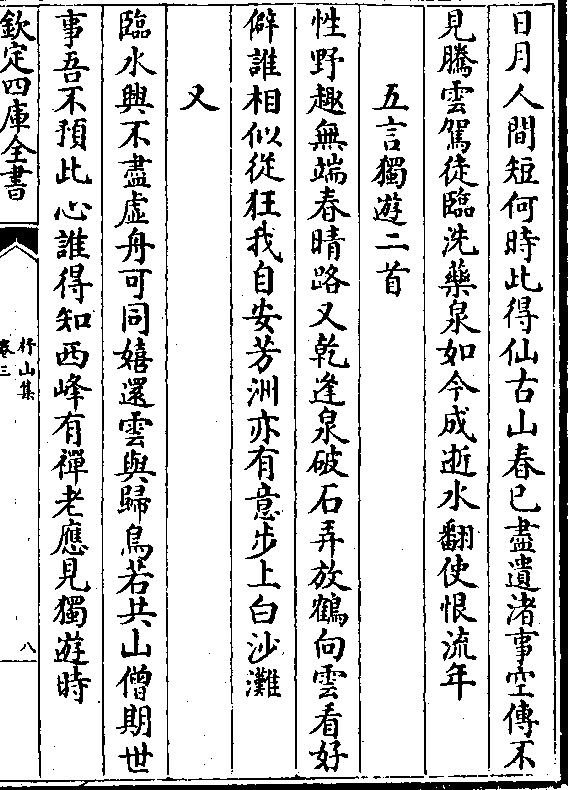 日月人間短何時此得仙古山春已盡遺渚事空傳不
見騰雲駕徒臨洗藥泉如今成逝水翻使恨流年
五言獨遊二首
性野趣無端春晴路又乾逢泉破石弄放鶴向雲看好
僻誰相似從狂我自安芳洲亦有意步上白沙灘
又
臨水興不盡虛舟可同嬉還雲與歸鳥若共山僧期世
事吾不預此心誰得知西峰有禪老應見獨遊時
欽定四庫全書
杼山集
卷三
八